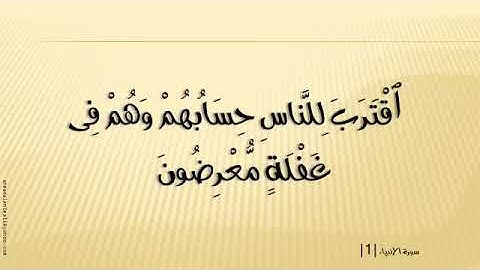 ٱقْتَرَبَ لِلنَّاسِ حِسَابُهُمْ وَهُمْ فِى
غَفْلَةٍ مُّعْرِضُونَ
سورة الانبياء |1|